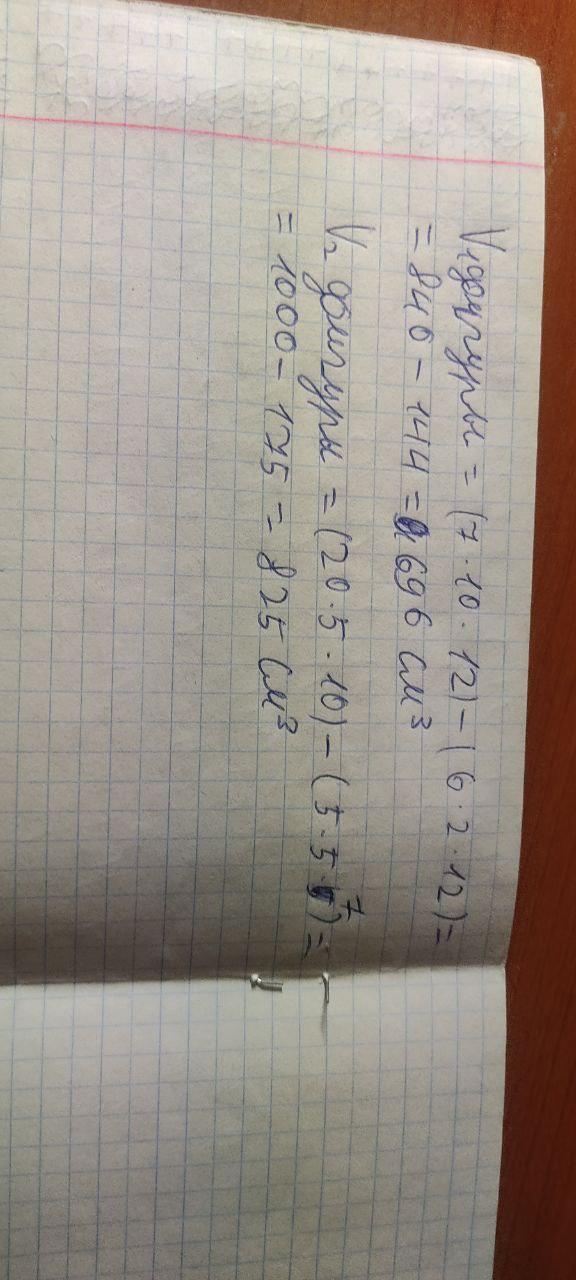 V₁ фигуры = (7 · 10 · 12) - (6 · 2 · 12) =
= 840 - 144 = 696 см³
V₂ фигуры = (20 · 5 · 10) - (5 · 5 · 7) =
= 1000 - 175 = 825 см³